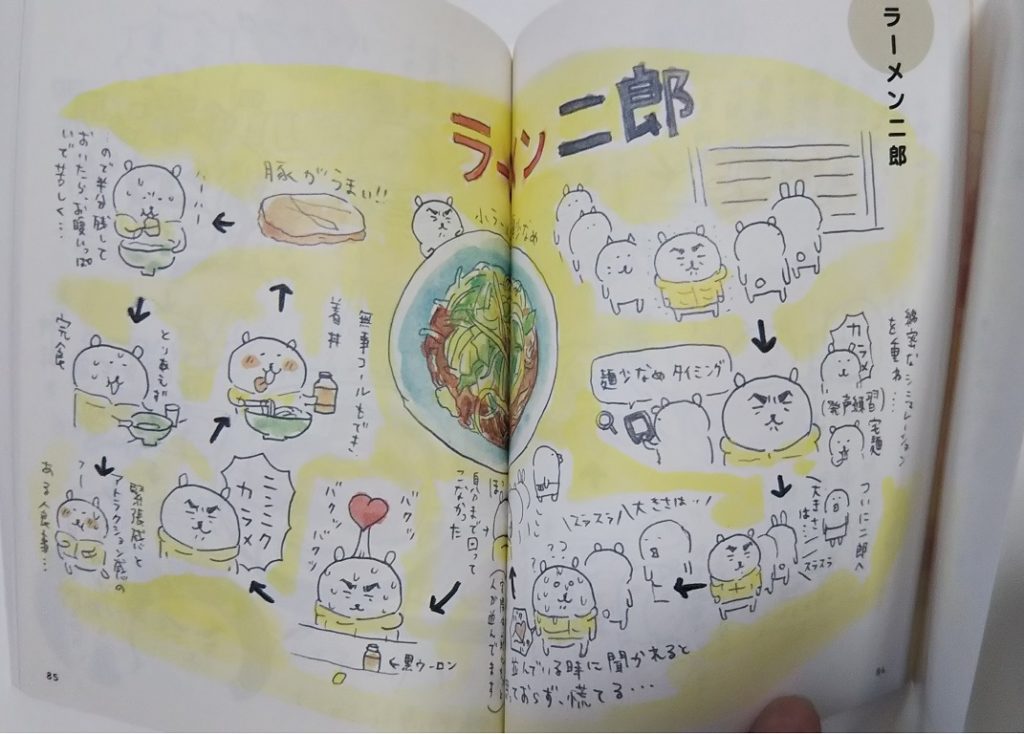 ラーメン二郎
ラーメン二郎
小ラーメン麺少なめ
綿密なシミュレーション
を重ね…
カラメ
(発声練習)
宅麺
麺少なめ タイミング
ついに二郎へ
大きさは…
スラスラ
大きさは…
スラスラ
??
並んでいる時に聞かれると
っておらず、慌てる…
自分まで回って
こなかった
人が並んでます)
バクン
バクン
バクン
←黒ウーロン
ニンニク
カラメ
無事コールもでき
着丼
豚がうまい!!
ハーハー
…ので半分残して
おいたら、お腹いっぱ
いで苦しく…
とりあえず
完食
フー
緊張感と
アトラクション感の
ある食事…
85
84